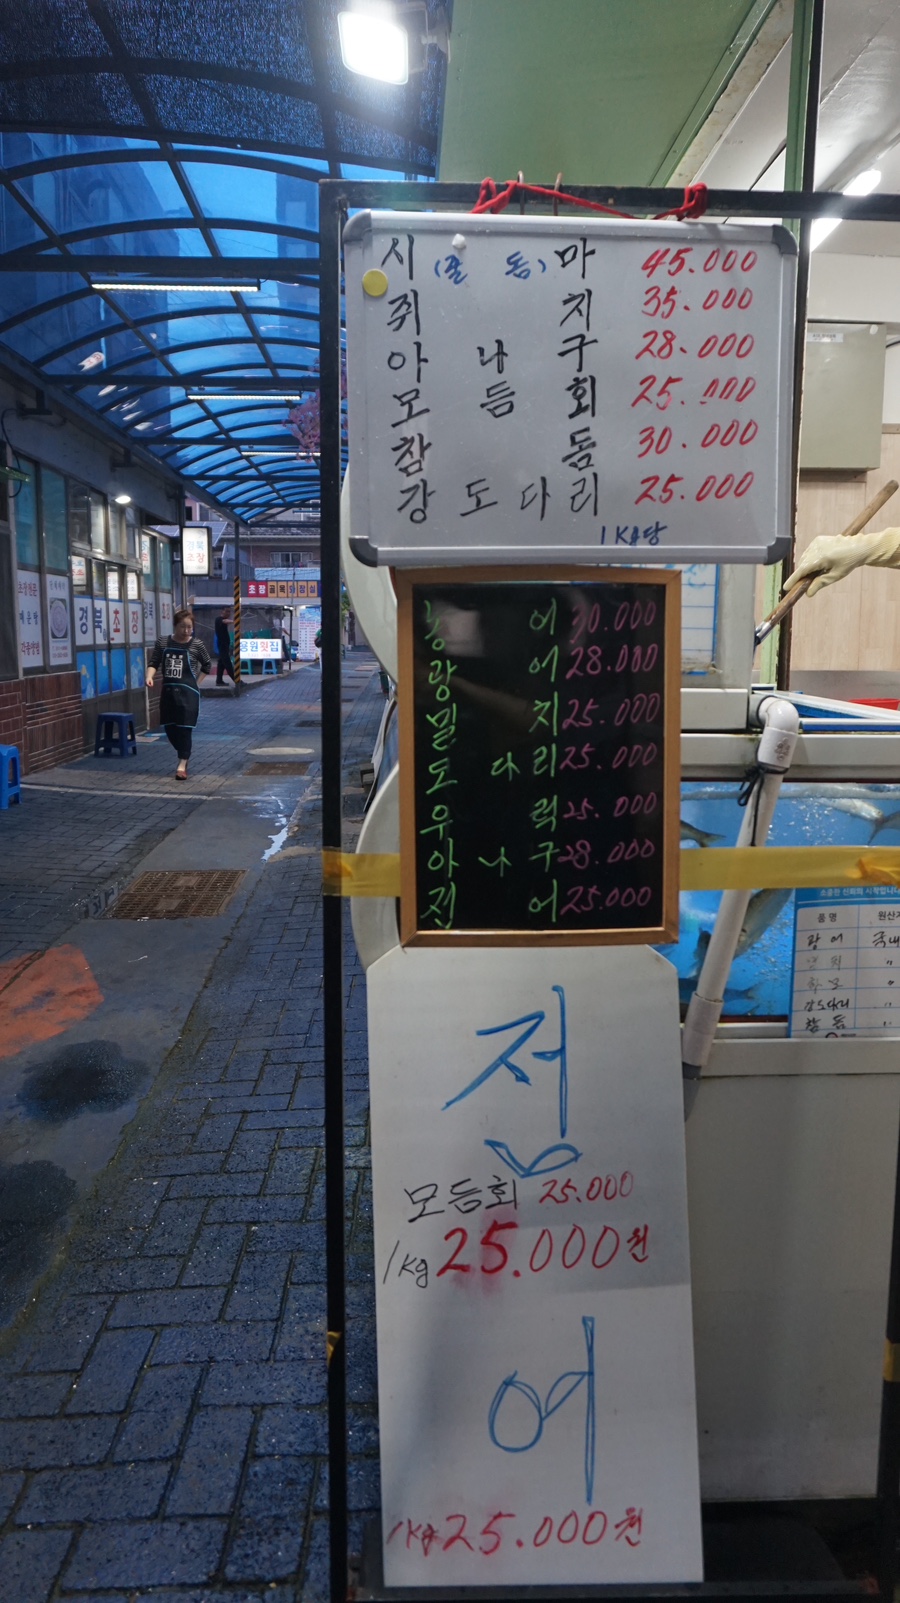 시(돌 돔)마 45.000
쥐 치 35.000
아 나 구 28.000
모 듬 회 25.000
참 돔 30.000
강 도 다 리 25.000
1Kg당
농 어 30.000
광 어 28.000
밀 치 25.000
도 다 리 25.000
우 럭 25.000
아 나 구 28.000
전 어 25.000
전
모듬회 25.000
1Kg 25.000원
어
1Kg 25.000원
경북 초장
경북 초장
초장골목화장실
응원횟집
품 명 원산지
광 어 국내
강도다리 "
참 돔 "